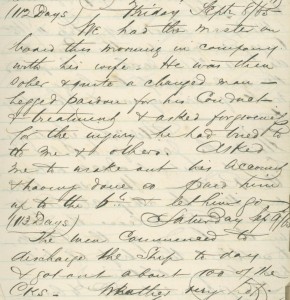 (112 Days) Friday Sept. 8/65
We had the Mate on
board this morning in company
with his wife. He was then
sober & quite a changed man —
begged pardon for his Conduct
& treatment & asked forgiveness
for the injury he had tried to
do me & others. Asked
me to make out his account
& having done so paid him
up to the 6th & let him go
(113 Days) Saturday Sept 9/65
The men Commenced to
discharge the Ship to day
& got out about 100 of the
Cks. Weather very hot.